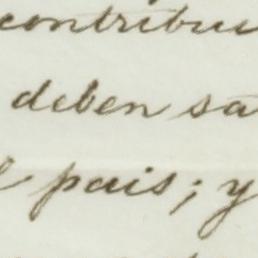 contribu
deben sa
pais; y